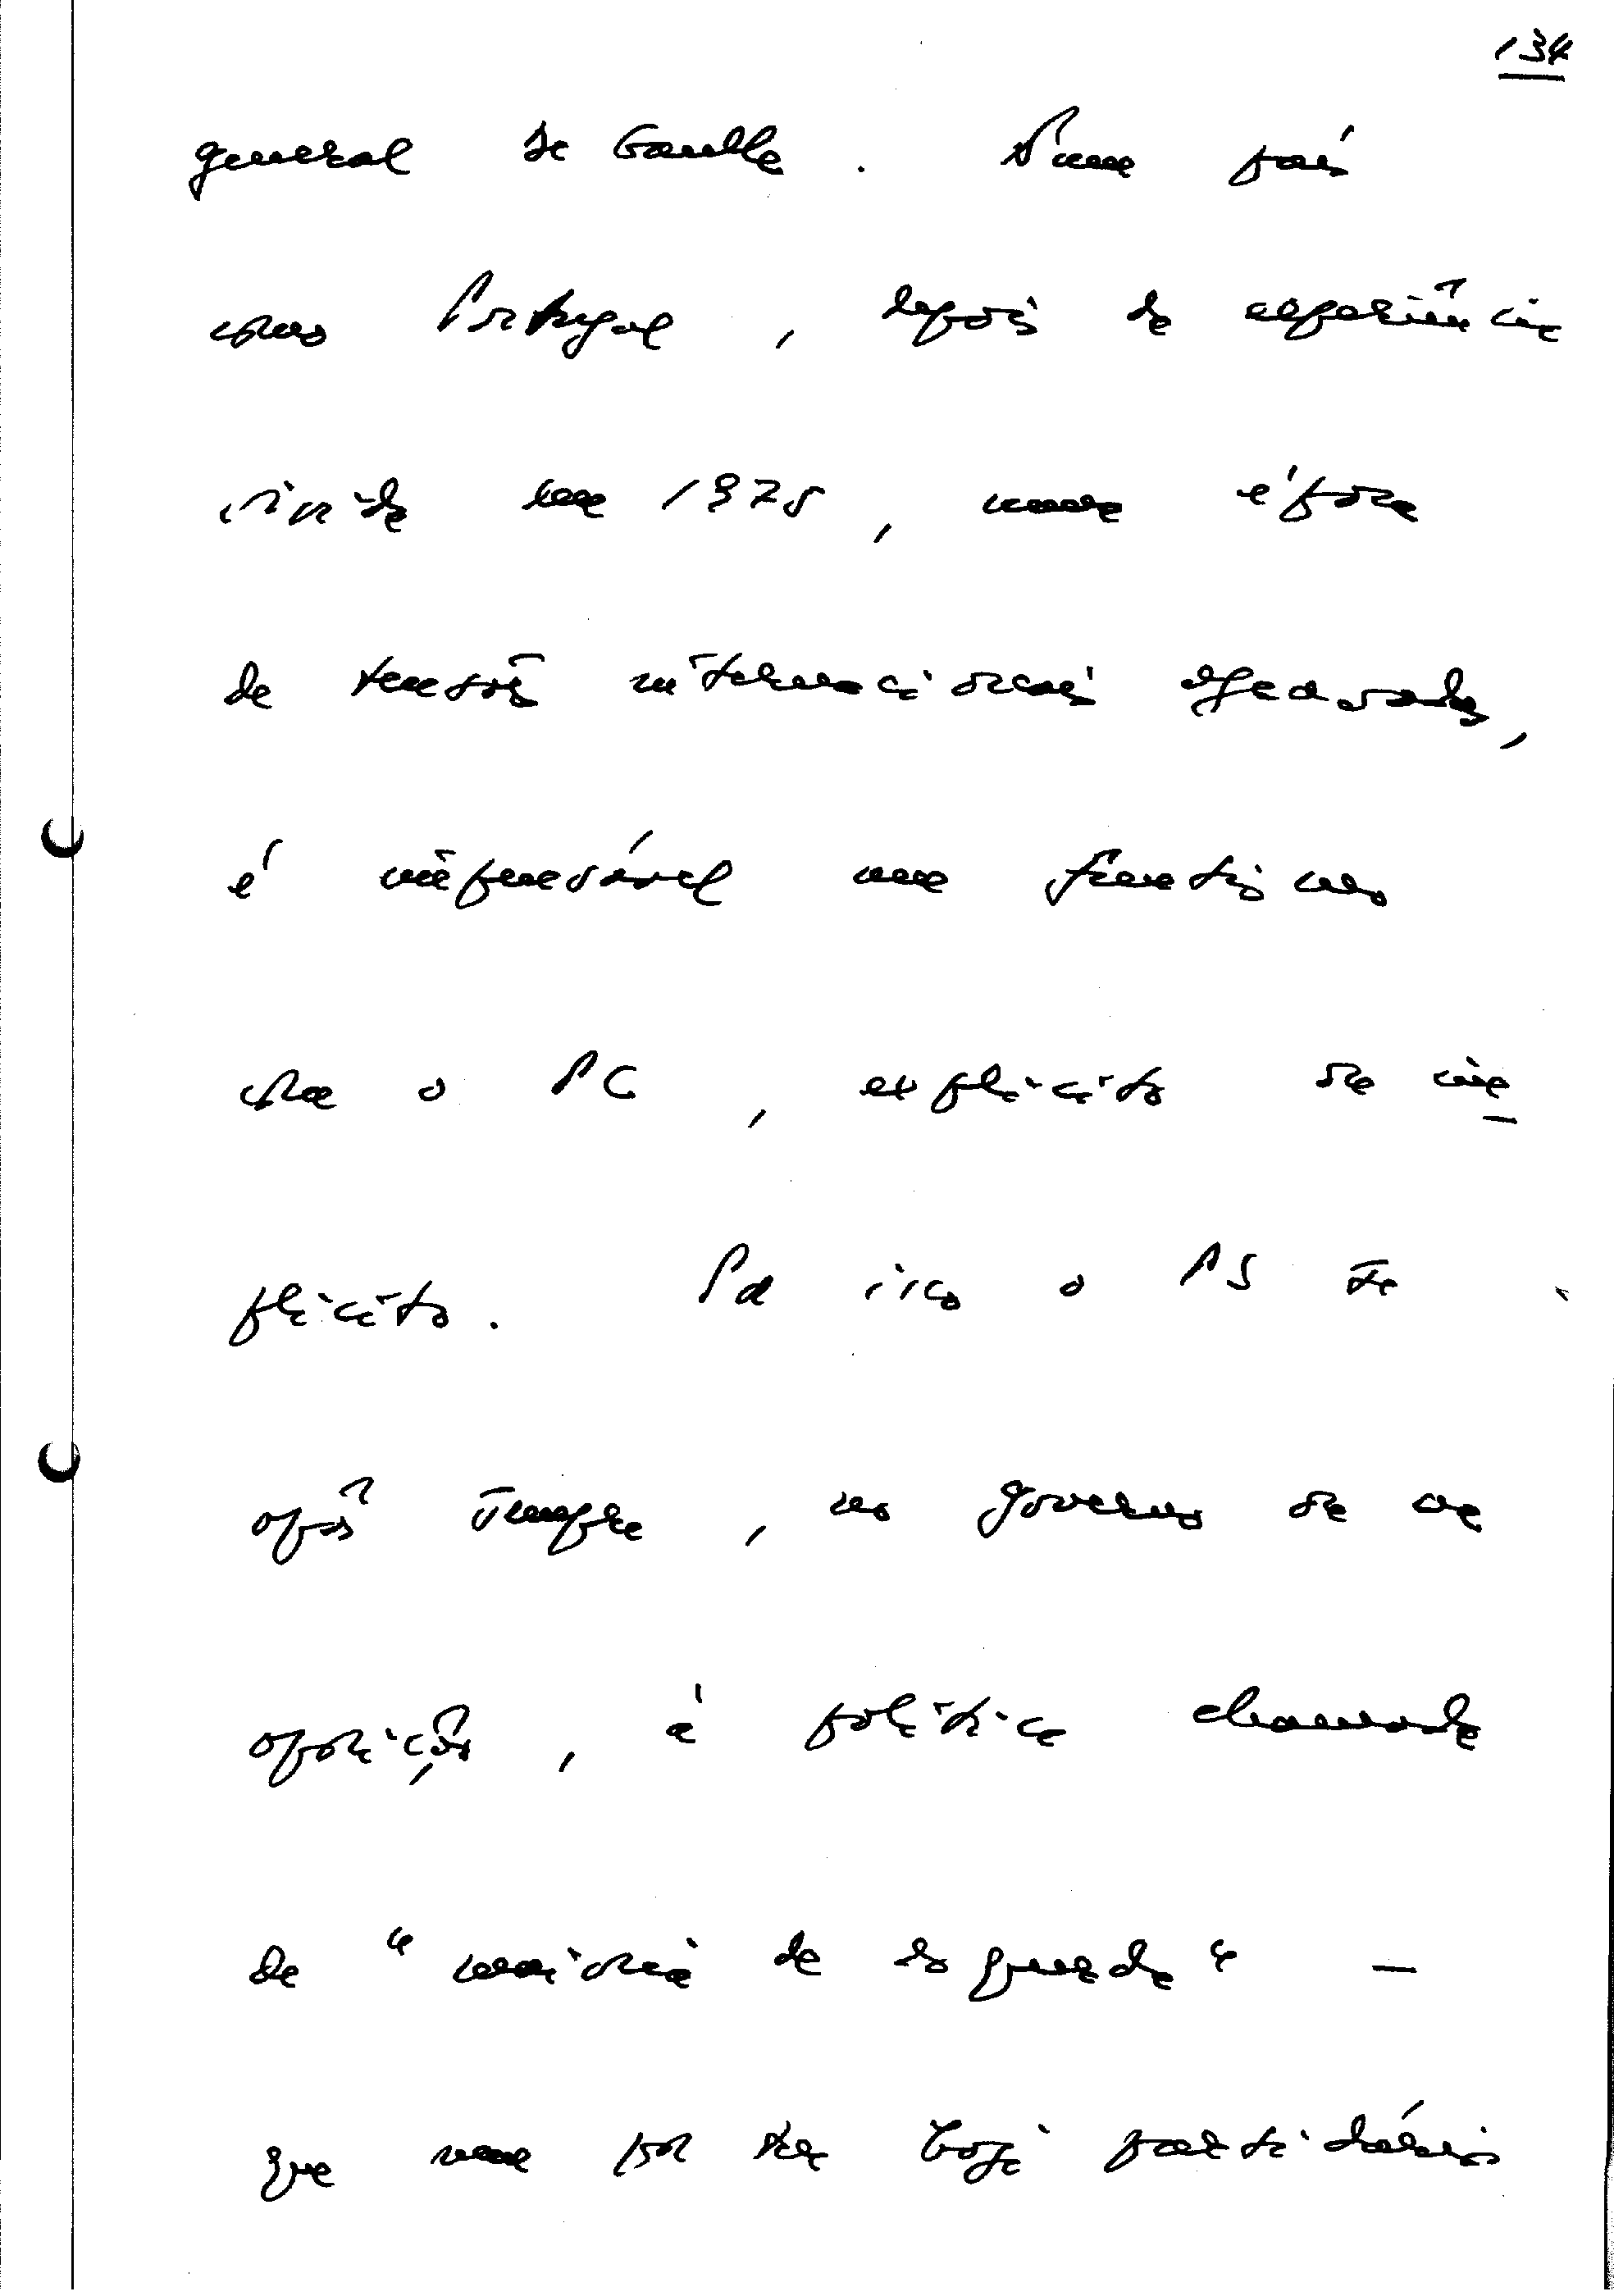 134
general de Gaulle. Num país
como Portugal, depois da experiência
vivida em 1975, numa época
de tensões internacionais agravadas,
é impensável um frentismo
com o PC, explícito ou im-
plícito. Por isso o PS se
opôs sempre, no governo ou na
oposição, à política chamada
de "maioria de esquerda" —
que nem por ter hoje partidários